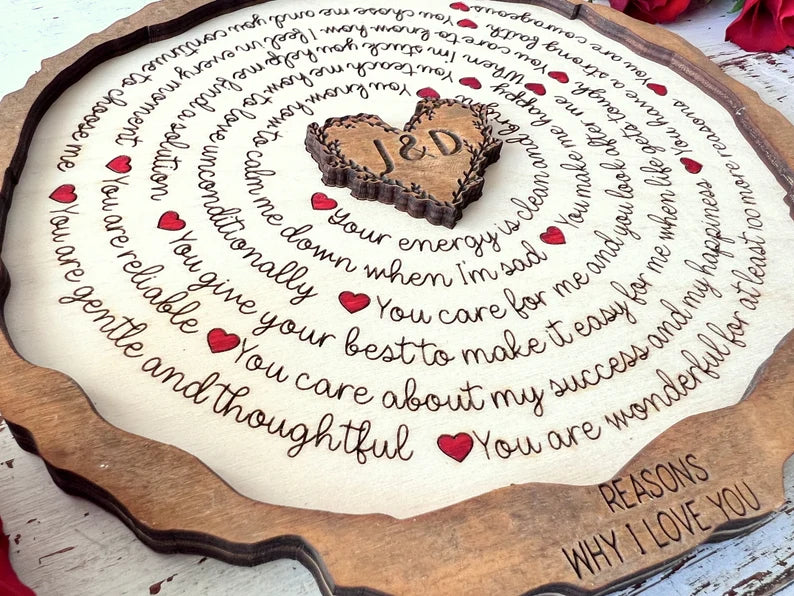 J & D
Your energy is clean and
You know how to calm me down when I'm sad
You make me happy
You teach me how to love unconditionally
You care for me and you look after me
When I'm stuck you help me find a solution
You give your best to make it easy for me when life gets tough
You care to know how I feel in every moment
You are reliable
You care about my success and my happiness
You have a strong faith
You chose me and you continue to choose me
You are gentle and thoughtful
You are wonderful for at least 100 more reasons
You are courageous
REASONS
WHY I LOVE YOU